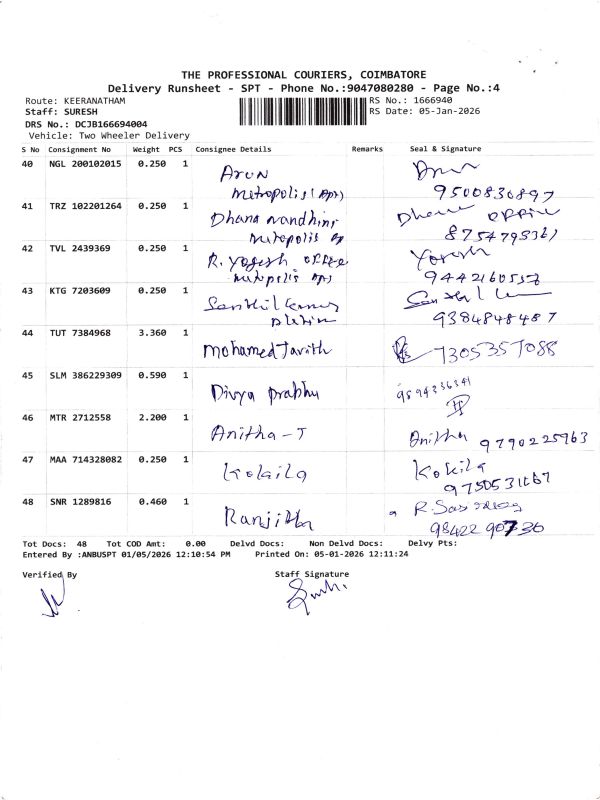 THE PROFESSIONAL COURIERS, COIMBATORE
Delivery Runsheet - SPT - Phone No.:9047080280 - Page No.:4
Route: KEERANATHAM
RS No.: 1666940
Staff: SURESH
RS Date: 05-Jan-2026
DRS No.: DCJB166694004
Vehicle: Two Wheeler Delivery
S No Consignment No Weight PCS Consignee Details Remarks Seal & Signature
40 NGL 200102015 0.250 1 Arun
metropolis (Apts) 9500830897
41 TRZ 102201264 0.250 1 Dhana nandhini Dhana office
8754793361
42 TVL 2439369 0.250 1 R. Yogesh office Yogesh
9442160538
43 KTG 7203609 0.250 1 Senthil Kumar
9384848487
44 TUT 7384968 3.360 1 Mohamed Javith 7305357088
45 SLM 386229309 0.590 1 Divya prabhu 9894336341
46 MTR 2712558 2.200 1 Anitha-J Anitha 9790225963
47 MAA 714328082 0.250 1 Kokila Kokila
48 SNR 1289816 0.460 1 Ranjitha
9842290736
Tot Docs: 48 Tot COD Amt: 0.00 Delvd Docs: Non Delvd Docs: Delvy Pts:
Entered By :ANBUSPT 01/05/2026 12:10:54 PM Printed On: 05-01-2026 12:11:24
Verified By Staff Signature